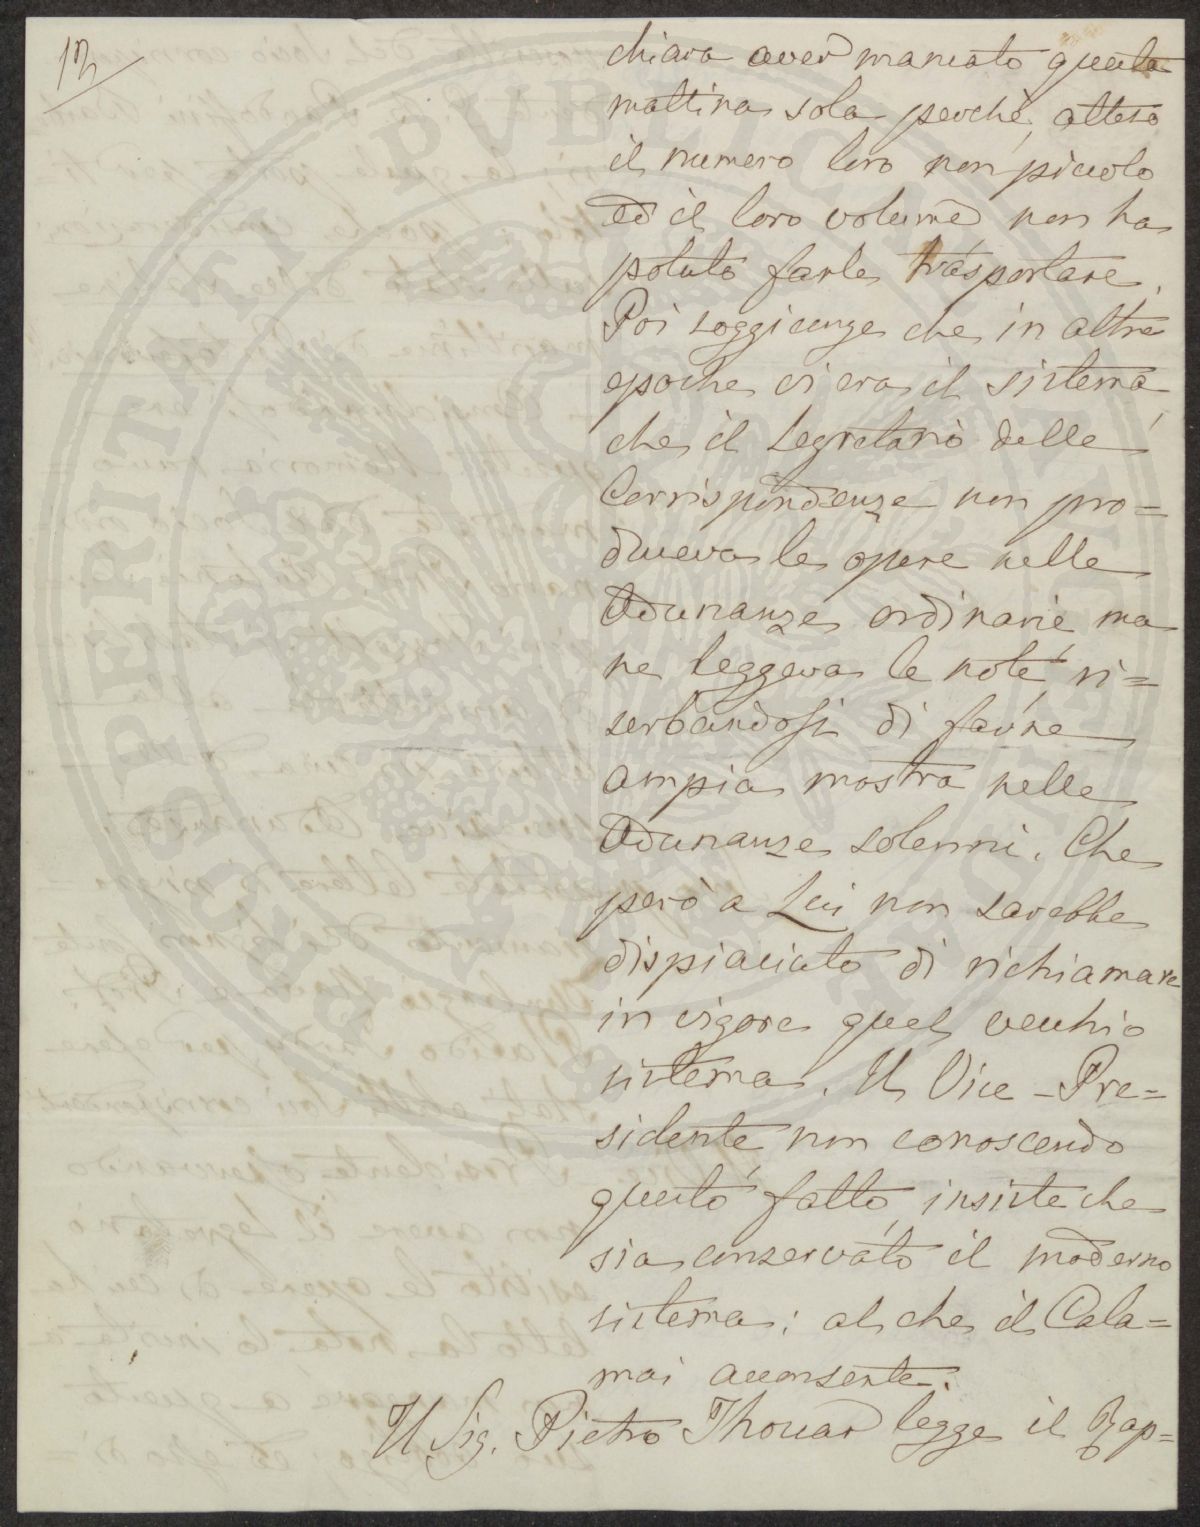 12
chiara aver mancato questa
mattina sola perchè, atteso
il numero loro non piccolo
ed il loro volume non ha
potuto farle trasportare.
Poi soggiunge che in altre
epoche vi era il sistema
che il Segretario delle
Corrispondenze non pro=
duceva le opere nelle
Adunanze ordinarie, ma
ne leggeva le note, ri=
serbandosi di farne
ampia mostra nelle
Adunanze solenni. Che
però a Lui non sarebbe
dispiaciuto di richiamare
in vigore quel vecchio
sistema. Il Vice-Pre=
sidente non conoscendo
questo fatto, insiste che
sia conservato il moderno
sistema; al che il Cala=
mai acconsente.
Il Sig. Pietro Thouar legge il Rap=
PROSPERITATI PVBLICAE AVGENDAE